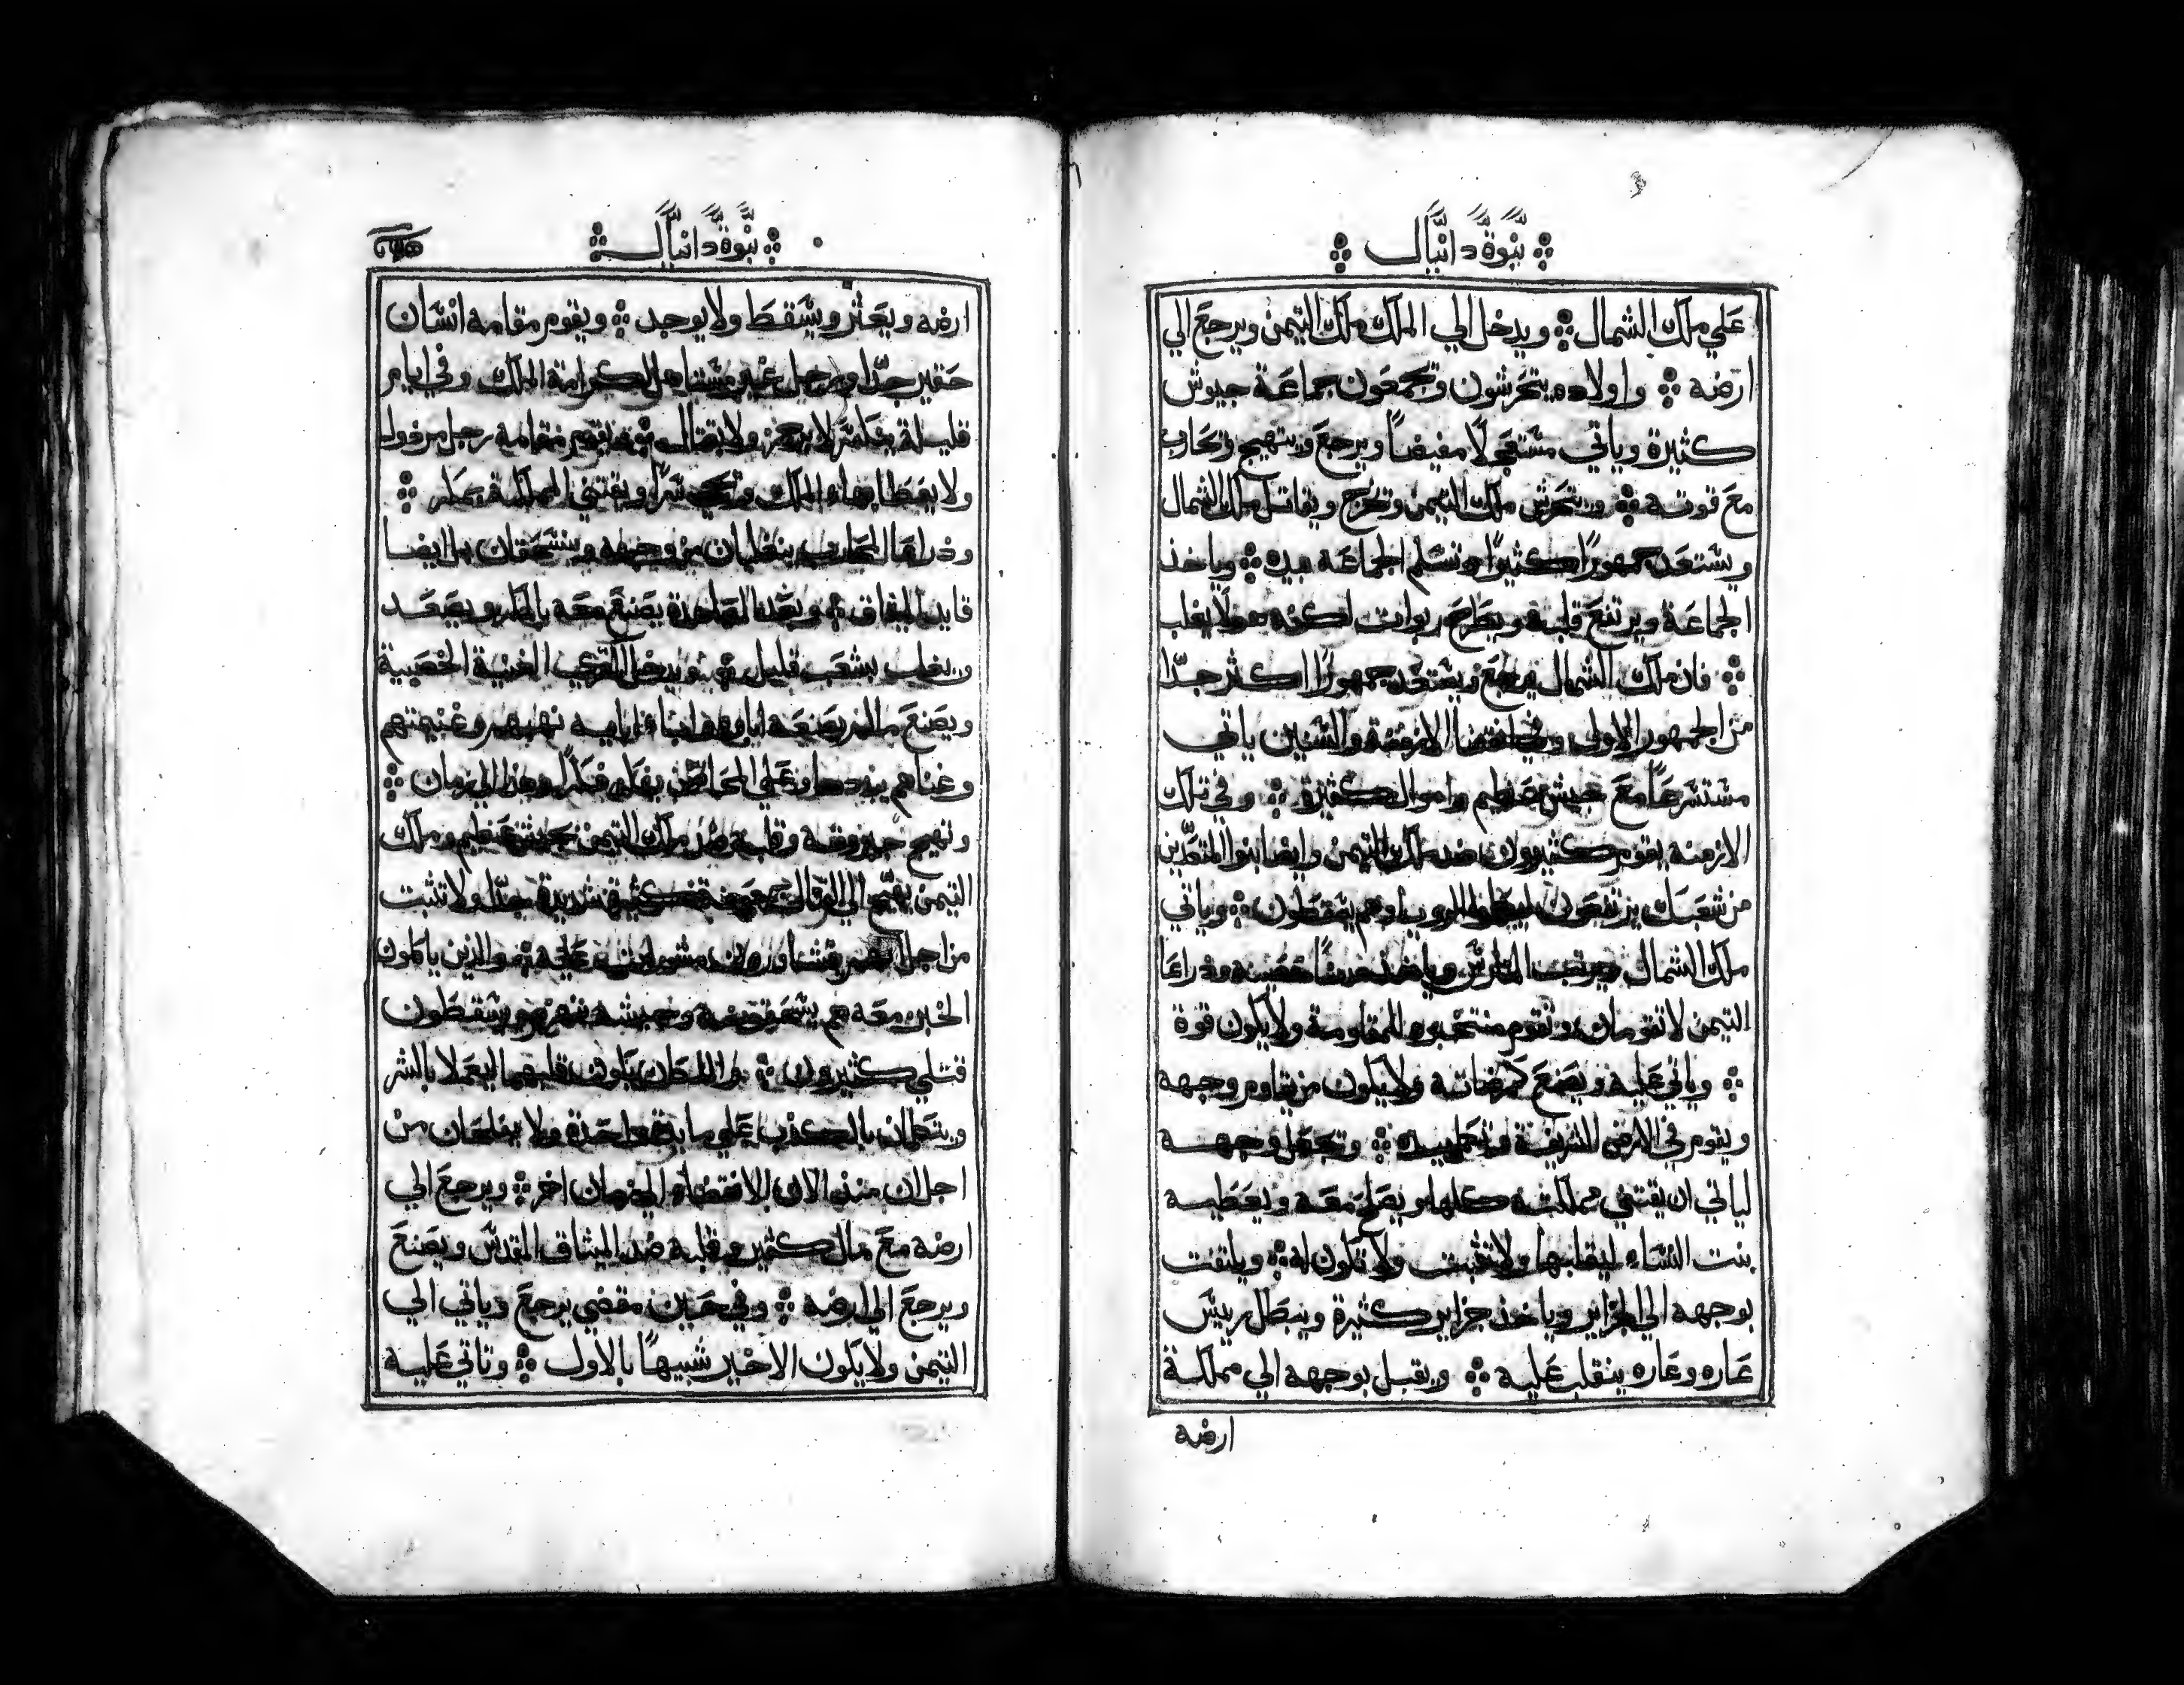 نبوة دانيال
علي ملك الشمال ويدخل الي الملك ملك التيمن ويرجع الي
ارضه واولاده يتحرشون وتجمعون جماعة جيوش
كثيرة وياتي مستعجلًا مفيضاً ويرجع ويتهيج وتحارب
مع قوته ويتحرش ملك التيمن وتخرج ويقاتل ملك الشمال
ويستعد جمهورًا كثيرًا وتسلم الجماعة بيده وياخذ
الجماعة ويرتفع قلبه ويطرح ربوات لكنه لا يغلب
فان ملك الشمال يرجع ويستعد جمهورًا اكثر جدّا
من الجمهور الاول وفي انقضا الازمنة والسنين ياتي
مستسرعًا مع جيش عظيم واموال كثيرة وفي تلك
الازمنه يقوم كثيرون ضد ملك التيمن وايضا بنوا المتعدّين
من شعبك يرتفعون ليكملوا الرويا وهم يسقطون وياتي
ملك الشمال ويرتب المتارس وياخذ مدنًا حصينه وذراعا
التيمن لا تقومان وتقوم منتخبوه للمقاومة ولا يكون قوة
وياتي عليه ويصنع كمرضاته ولا يكون من يقاوم وجهه
ويقوم في الارض الشريفة وتجعل وجهه
لياتي ان يقتني مملكته كلها ويصلح معه ويعطيه
بنت النساء ليقلبها ولا تثبت ولا تكون له ويلتفت
بوجهه الي الجزاير وياخذ جزاير كثيرة ويبطل رييس
عاره وعاره ينقلب عليه ويقبل بوجهه الي مملكة
ارضه
نبوة دانيال
ارضه ويعثر ويسقط ولا يوجد ويقوم مقامه انسان
حقير جدّا ورجل غير مستاهل لكرامة الملك وفي ايام
قليلة لا برجز ولا بقتال ويقوم مقامه رجل مرذول
ولا يعطا بهاء الملك سرًا ويقتني المملكة بمكر
وذراعا المحارب ينغلبان من وجهه وينسحقان بل ايضا
قايد الميثاق وبعد المصاحبة يصنع معه بالمكر ويصعد
ويغلب بشعب قليل ويدخل القري الغنية الخصبية
ويصنع ما لم يصنعه اباوه وابا ابايه نهبهم وغنيمتهم
وغناهم يبددها وعلي المحاصن يفكر فكرًا وهذا الي زمان
وتهيج جبروته وقلبه ضد ملك التيمن بجيش عظيم وملك
التيمن يتهيج الي القتال كثيرة شديدة جدّا ولا تثبت
من اجل انهم يتشاورون مشورات عليه والذين ياكلون
الخبز معه هم يسحقونه وجيشه ينهزم ويسقطون
قتلي كثيرون والملكان يكون قلبهما ليعملا بالشر
ويتكلمان بالكذب علي مايدة واحدة ولا يفلحان من
اجل ان منذ الان الانقضاء الي زمان اخر ويرجع الي
ارضه مع مال كثير وقلبه ضد الميثاق المقدس ويصنع
ويرجع الي ارضه وفي حين مقضي يرجع وياتي الي
التيمن ولا يكون الاخير شبيهًا بالاول وتاتي عليه